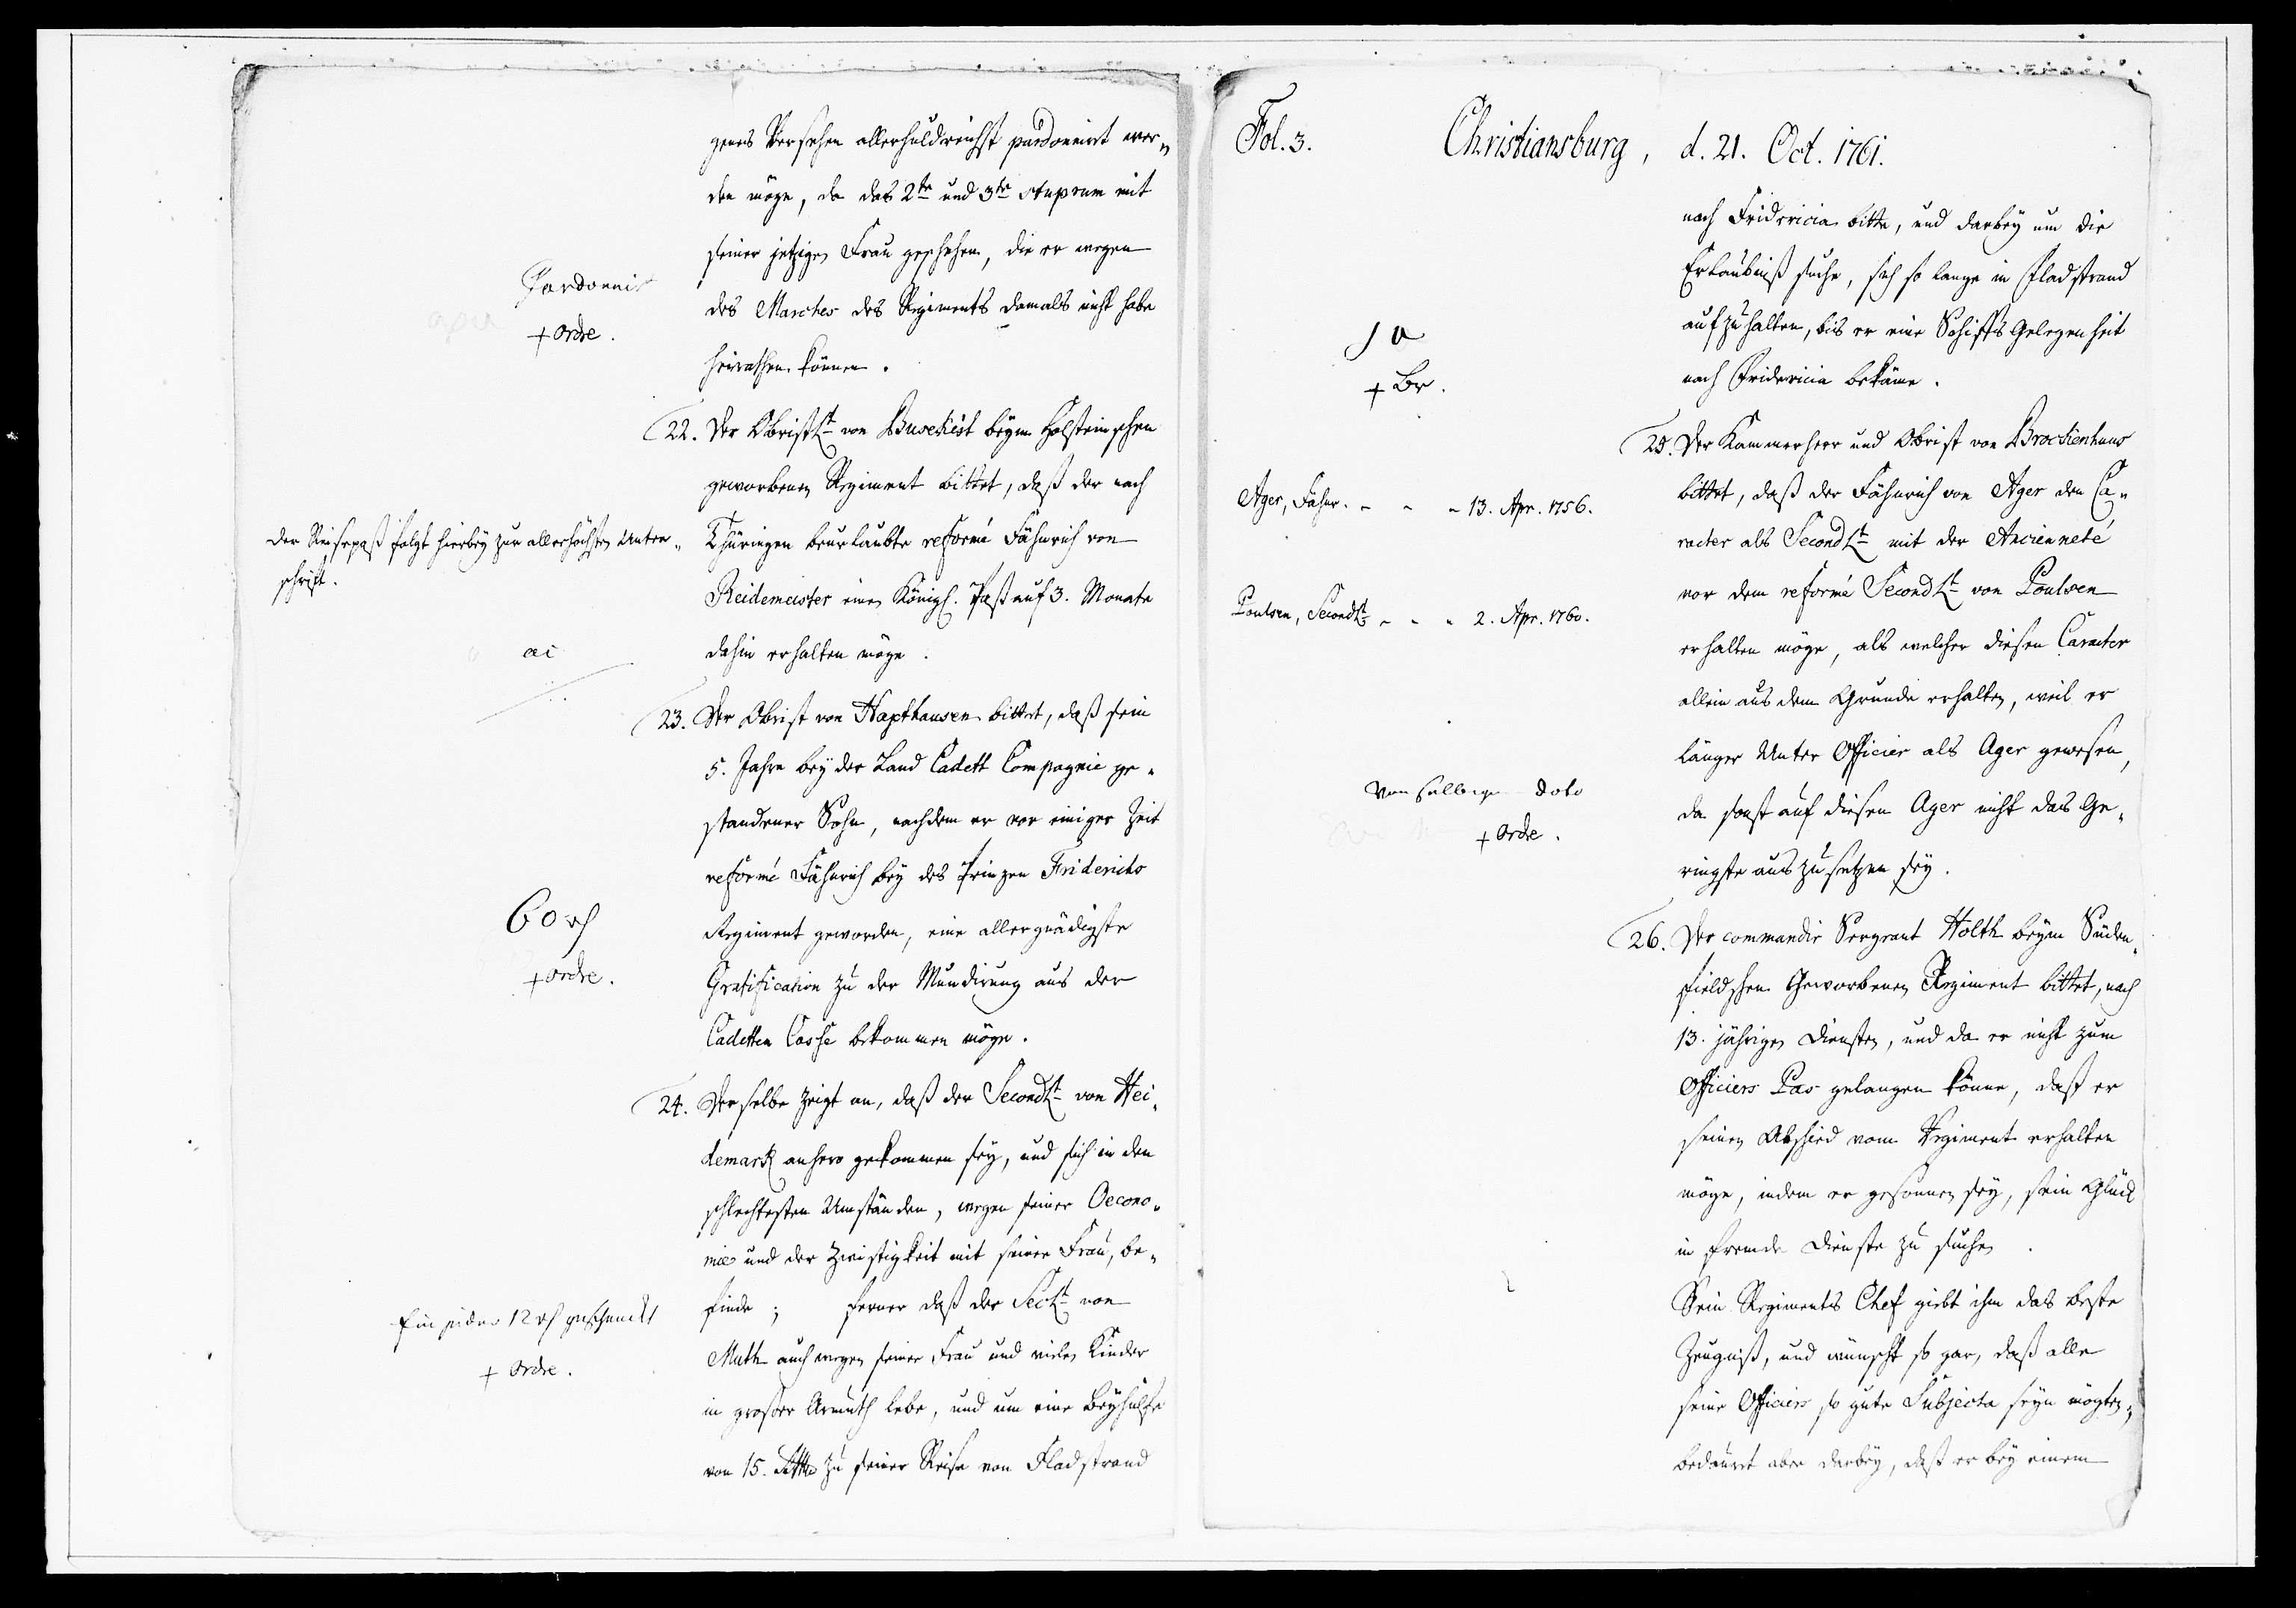 genes Versehen allerhuldreichst pardonnirt wer„
den möge, da das 2te und 3te stuprum mit
seiner jetzigen Frau geschehen, die er wegen
Pardonnir
des Marches des Regiments damals nicht habe
+ Ordre.
heirathen können.
22. Der Obristlt von Buschist beym Holsteinschen
geworbenen Regiment bittet, daß der nach
Der Reisepaß folgt hierbey zur allerhöchsten Unter„
schrift.
Thüringen beurlaubte reformé Fähnrich von
Reidemeister einen Königl. Paß auf 3. Monate
dahin erhalten möge.
23. Der Obrist von Haxthausen bittet, daß sein
5. Jahre bey der Land Cadett Compagnie ge„
standener Sohn, nachdem er vor einiger Zeit
reformé Fähnrich bey des Prinzen Friderichs
60 rh
Regiment geworden, eine allergnädigste
+ Ordre.
Gratification zu der Mundirung aus der
Cadetten Casse bekommen möge.
24. Derselbe zeigt an, daß der Secondlt von Hei„
demark anhero gekommen sey, und sich in den
schlechtesten Umständen, wegen seiner Oecono„
mie und der Zwistigkeit mit seiner Frau, be„
finde; ferner daß der Seclt von
Ein jeder 12 rh geschenckt
Muth auch wegen seiner Frau und vielen Kinder
+ Ordre.
in großer Armuth lebe, und um eine Beyhülfe
von 15. Rthlr zu seiner Reise von Fladstrand
Fol. 3. Christiansburg, d. 21. Oct. 1761.
nach Fridericia bitte, und darbey um die
Erlaubniß suche, sich so lange in Fladstrand
aufzuhalten, bis er eine Schiffs Gelegenheit
Ja
+ Br.
nach Fridericia bekäme.
25. Der Kammerherr und Obrist von Brockenhuus
bittet, daß der Fähnrich von Ager den Ca„
Ager, Fähnr. - - - 13. Apr. 1756.
racter als Secondlt mit der Ancienneté
vor dem reformé Secondlt von Poulsen
Poulsen, Secondlt - - - 2. Apr. 1760.
erhalten möge, als welcher diesen Caracter
allein aus dem Grunde erhalten, weil er
länger Unter Officier als Ager gewesen,
von selbige dato
da sonst auf diesen Ager nicht das Ge„
+ Ordre.
ringste auszusetzen sey.
26. Der commandir Sergeant Holth beym Süden„
fieldschen Geworbenen Regiment bittet, nach
13. jährigen Diensten, und da er nicht zum
Officiers Pas gelangen könne, daß er
seinen Abschied vom Regiment erhalten
möge, indem er gesonnen sey, sein Glück
in fremde Dienste zu suchen.
Sein Regiments Chef giebt ihm das beste
Zeugniß, und wünscht so gar, daß alle
seine Officiers so gute Subjecta seyn mögten,
bedauert aber darbey, daß er bey einem